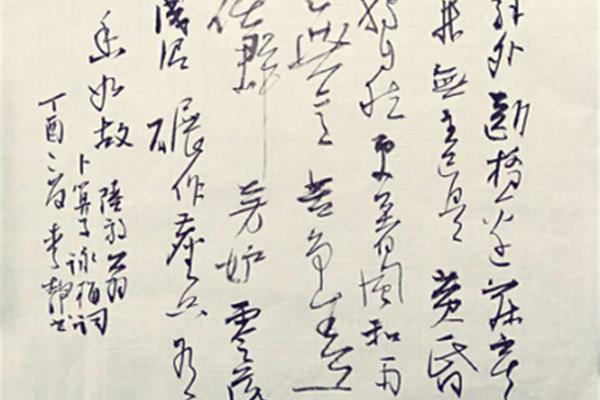 驛外斷橋邊寂寞
開無主已是黄昏
獨自愁更著風和雨
無意苦争春一
任群芳妒零落
成泥碾作塵只有
香如故
陸放翁
卜算子詠梅詞
丁酉 李靜书